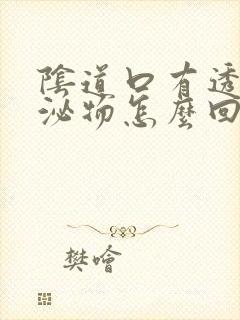 陰道口有透
泌物怎麼回
樊噲